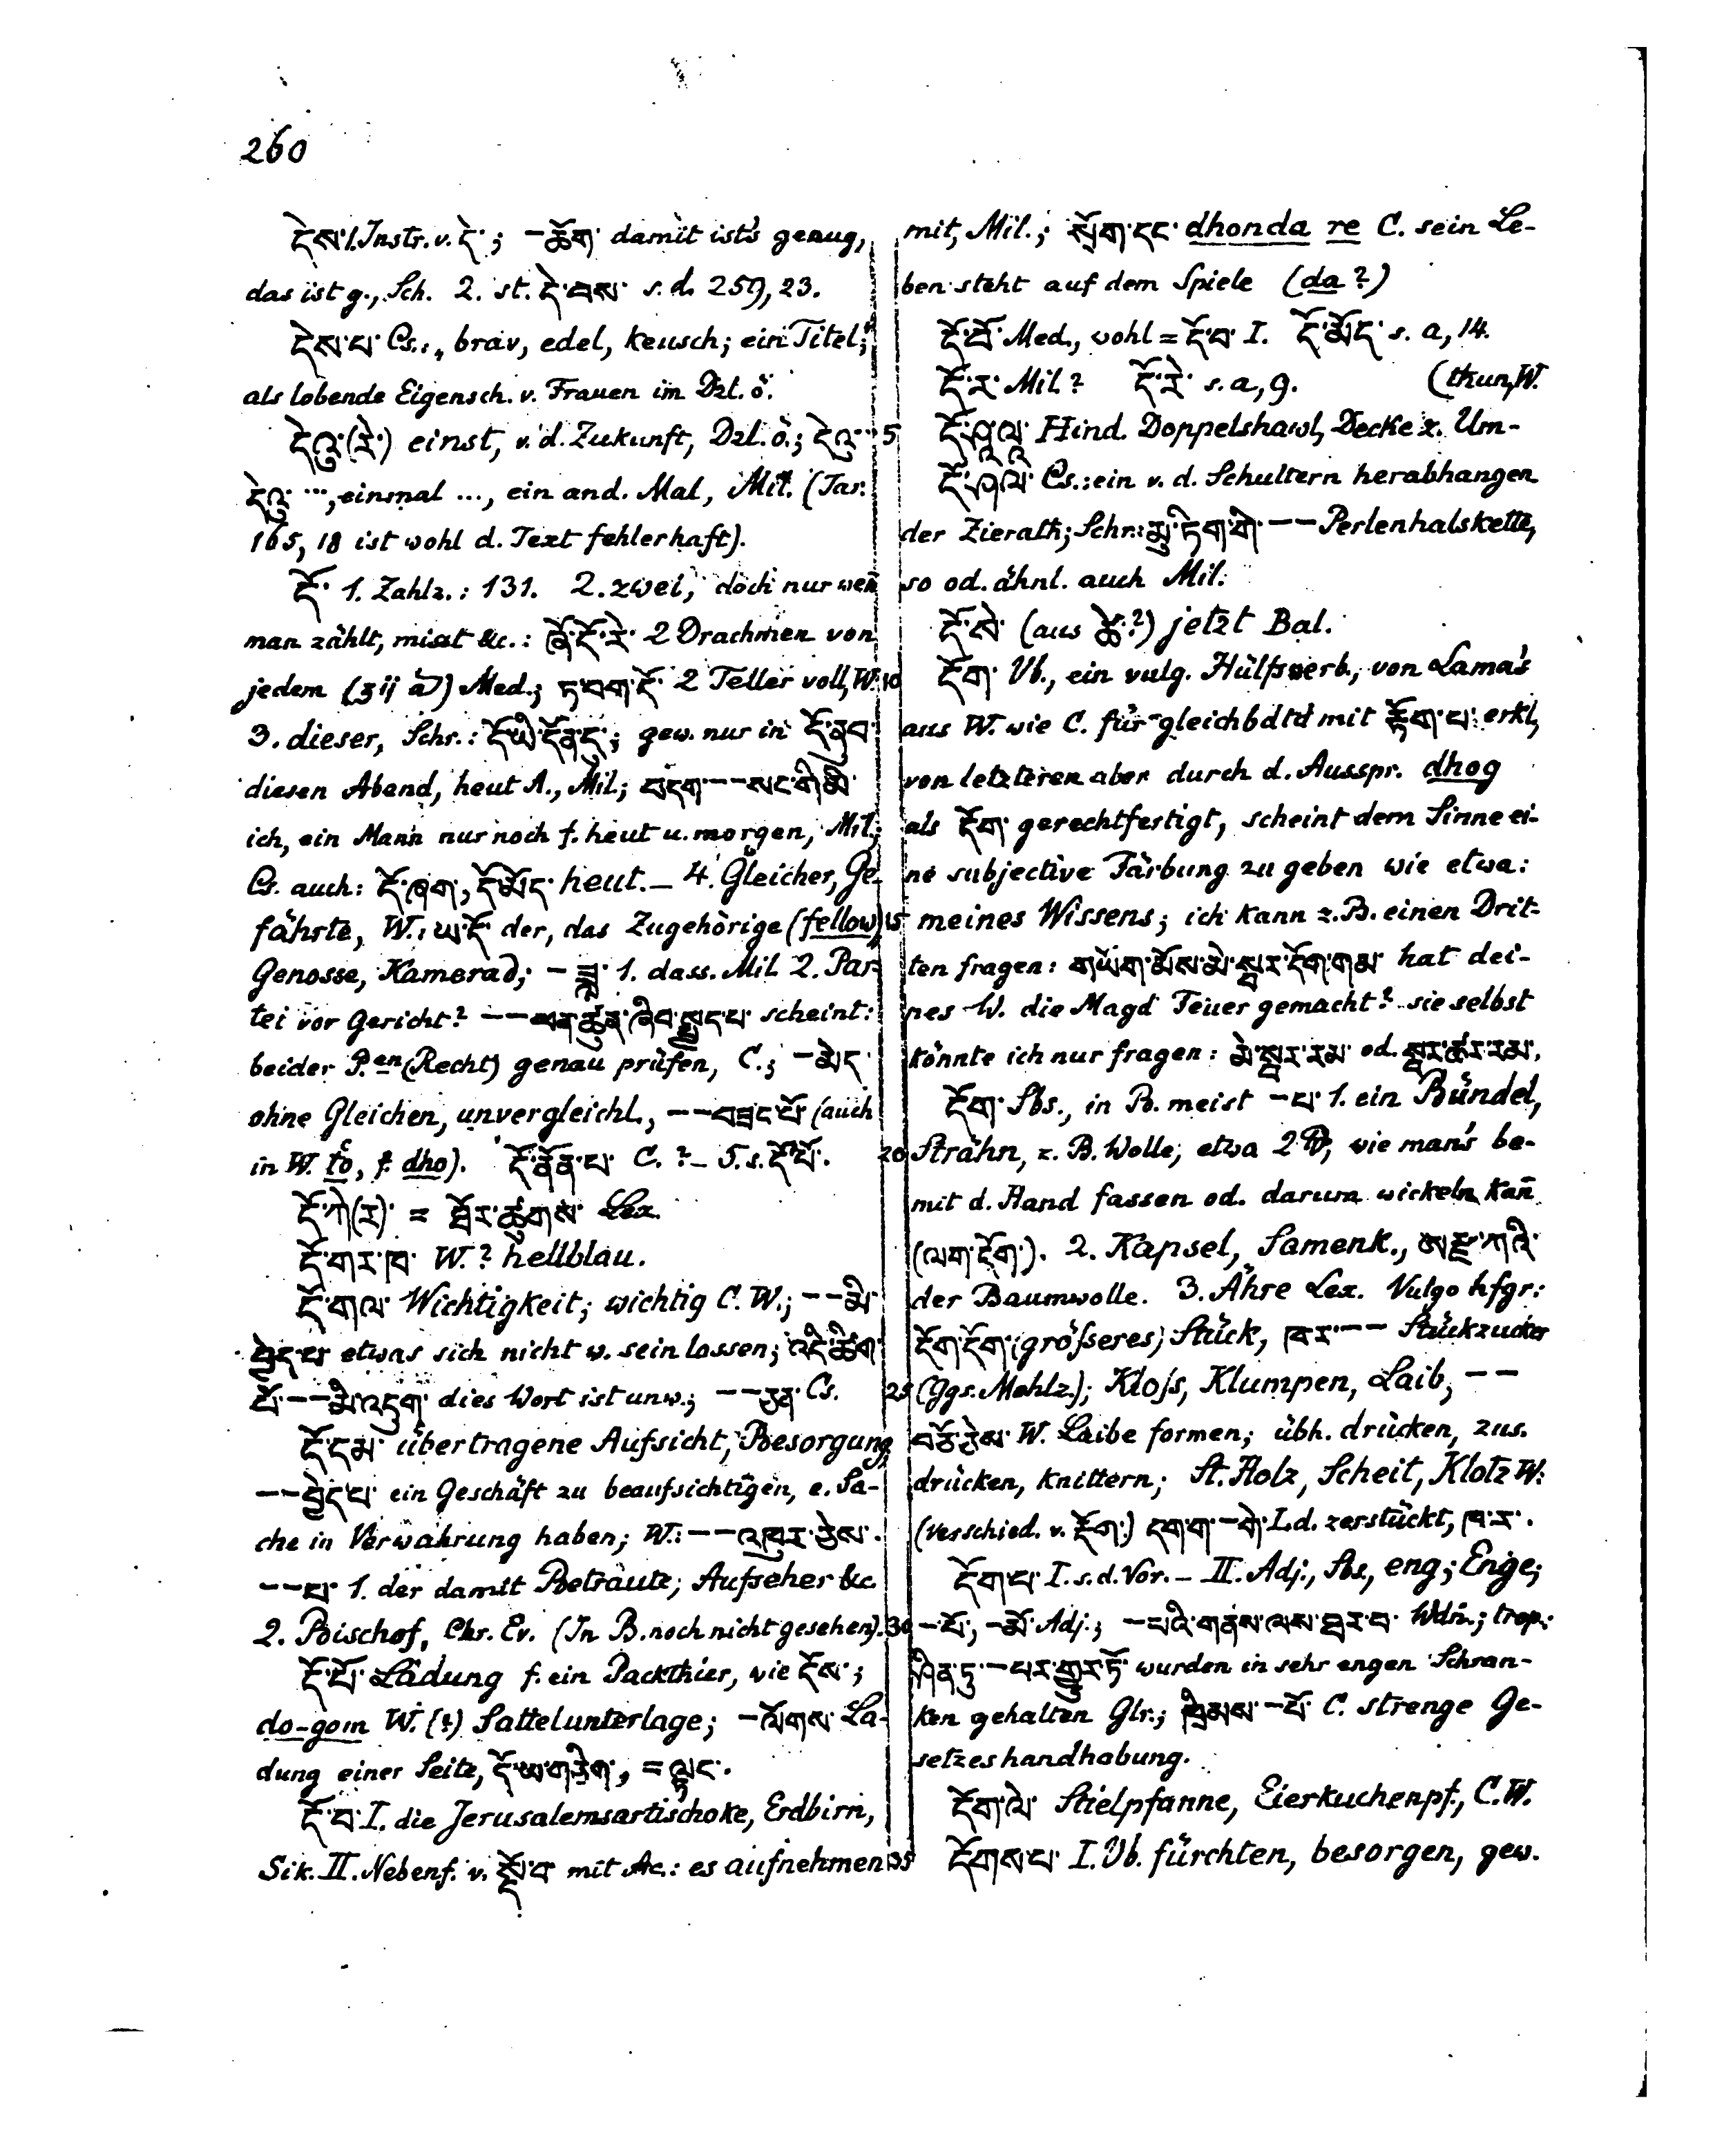 260
དེས་ 1. Instr. v. དེ་; –ཆོག་ damit ist's genug,
das ist g., Sch. 2. st. དེ་བས་ s. d. 259, 23.
དེས་པ་ Cs.: „brav, edel, keusch; ein Titel;"
als lobende Eigensch. v. Frauen im Dzl. ö.
དེའུ་(རེ་) einst, v. d. Zukunft, Dzl. ö.; དེའུ་ ...
དེའུ་ ..., einmal ..., ein and. Mal, Mil. (Tar.
165, 18 ist wohl d. Text fehlerhaft).
དོ་ 1. Zahlz.: 131. 2. zwei, doch nur wen̄
man zählt, misst &c.: ཞོ་དོ་རེ་ 2 Drachmen von
jedem (ʒij a) Med.; ཏ་བག་དོ་ 2 Teller voll, W.
3. dieser, Schr.: དོ་ཡི་དོན་དུ་; gew. nur in དོ་ནུབ་
diesen Abend, heut A., Mil.; བདག་––སང་གི་མི་
ich, ein Mann nur noch f. heut u. morgen, Mil.;
Cs. auch: དོ་ཞག་, དོ་མོད་ heut. – 4. Gleicher, Ge-
fährte, W.: ཡ་དོ་ der, das Zugehörige (fellow),
Genosse, Kamerad; –ཟླ་ 1. dass. Mil. 2. Par-
tei vor Gericht? ––ཕན་ཚུན་ཞིབ་སྦྱད་པ་ scheint:
beider P.en (Recht) genau prüfen, C.; –མེད་
ohne Gleichen, unvergleichl., ––བཟང་པོ་ (auch
in W. to, f. dho). དོ་ནོན་པ་ C.? – 5. s. དོ་པོ་.
དོ་ཀེ(ར)་ = ཐོར་ཚུགས་ Lex.
དོ་གར་ཁ་ W.? hellblau.
དོ་གལ་ Wichtigkeit; wichtig C. W.; ––མི་
བྱེད་པ་ etwas sich nicht w. sein lassen; འདི་ཚིག་
པོ་––མི་འདུག་ dies Wort ist unw.; ––ཅན་ Cs.
དོ་དམ་ übertragene Aufsicht, Besorgung,
––བྱེད་པ་ ein Geschäft zu beaufsichtigen, e. Sa-
che in Verwahrung haben; W.: ––འཁུར་ཅེས་.
––པ་ 1. der damit Betraute; Aufseher &c.
2. Bischof, Chr. Ev. (In B. noch nicht gesehen).
དོ་པོ་ Ladung f. ein Packthier, wie དོས་;
do-gom W. (?) Sattelunterlage; –ལོགས་ La-
dung einer Seite, དོ་ཡ་གཅིག་, = ལྟང་.
དོ་བ་ I. die Jerusalemsartischoke, Erdbirn,
Sik. II. Nebenf. v. སྡོ་བ་ mit Ac.: es aufnehmen
5
10
15
20
25
30
35
mit, Mil.; སྲོག་དང་ dhonda re C. sein Le-
ben steht auf dem Spiele (da?)
དོ་བོ་ Med., wohl = དོ་བ་ I. དོ་མོད་ s. a, 14.
དོ་ར་ Mil.? དོ་རེ་ s. a, 9. (tkun, W.
དོ་ཤཱ་ལཱ་ Hind. Doppelshawl, Decke z. Um-
དོ་ཤལ་ Cs.: ein v. d. Schultern herabhangen
der Zierath; Schr.: མུ་ཏིག་གི་––Perlenhalskette,
so od. ähnl. auch Mil.
དོ་སེ་ (aus ཚེ་?) jetzt Bal.
དོག་ Vb., ein vulg. Hülfsverb., von Lama's
aus W. wie C. für gleichbdtd mit རྟོག་པ་ erkl,
von letzteren aber durch d. Ausspr. dhog
als དོག་ gerechtfertigt, scheint dem Sinne ei-
ne subjective Färbung zu geben wie etwa:
meines Wissens; ich kann z. B. einen Drit-
ten fragen: གཡོག་མོས་མེ་སྦར་དོག་གམ་ hat dei-
nes W. die Magd Feuer gemacht? sie selbst
könnte ich nur fragen: མེ་སྦར་རམ་ od. སྦར་ཚར་རམ་.
དོག་ Sbs., in B. meist –པ་ 1. ein Bündel,
Strähn, z. B. Wolle, etwa 2 ℔, wie man's be-
mit d. Hand fassen od. darum wickeln kan̄
(ལག་དོག་). 2. Kapsel, Samenk.,
der Baumwolle. 3. Ähre Lex. Vulgo hfgr:
དོག་དོག་ (größeres) Stück, ཁ་ར་–– Stückzucker
(Ggs. Mehlz.); Kloß, Klumpen, Laib, ––
བཅོ་ཅེས་ W. Laibe formen; übh. drücken, zus.
drücken, knittern; St. Holz, Scheit, Klotz W.
(verschied. v. རྡོག་) དག་ག་–གེ་ Ld. zerstückt, ཁ་ར་.
དོག་པ་ I. s. d. Vor. – II. Adj., Sbs., eng; Enge;
–པོ་, –མོ་ Adj.; –པའི་གནས་ལས་ཐར་བ་ Wdn.; trop.
ཤིན་ཏུ་–པར་གྱུར་ཏོ་ wurden in sehr engen Schran-
ken gehalten Glr.; ཁྲིམས་–པོ་ C. strenge Ge-
setzeshandhabung.
དོག་ལེ་ Stielpfanne, Eierkuchenpf., C. W.
དོགས་པ་ I. Vb. fürchten, besorgen, gew.